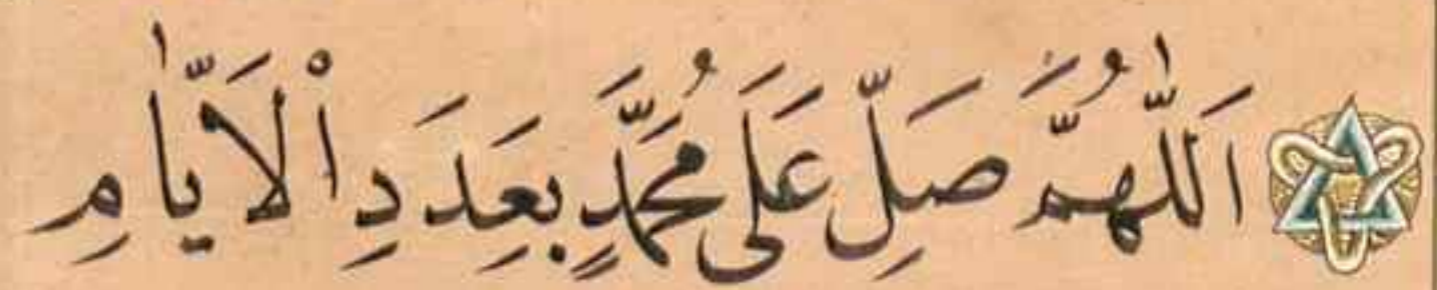 اَللّٰهُمَّ صَلِّ عَلَى مُحَمَّدٍ بِعَدَدِ اْلاَيَّامِ